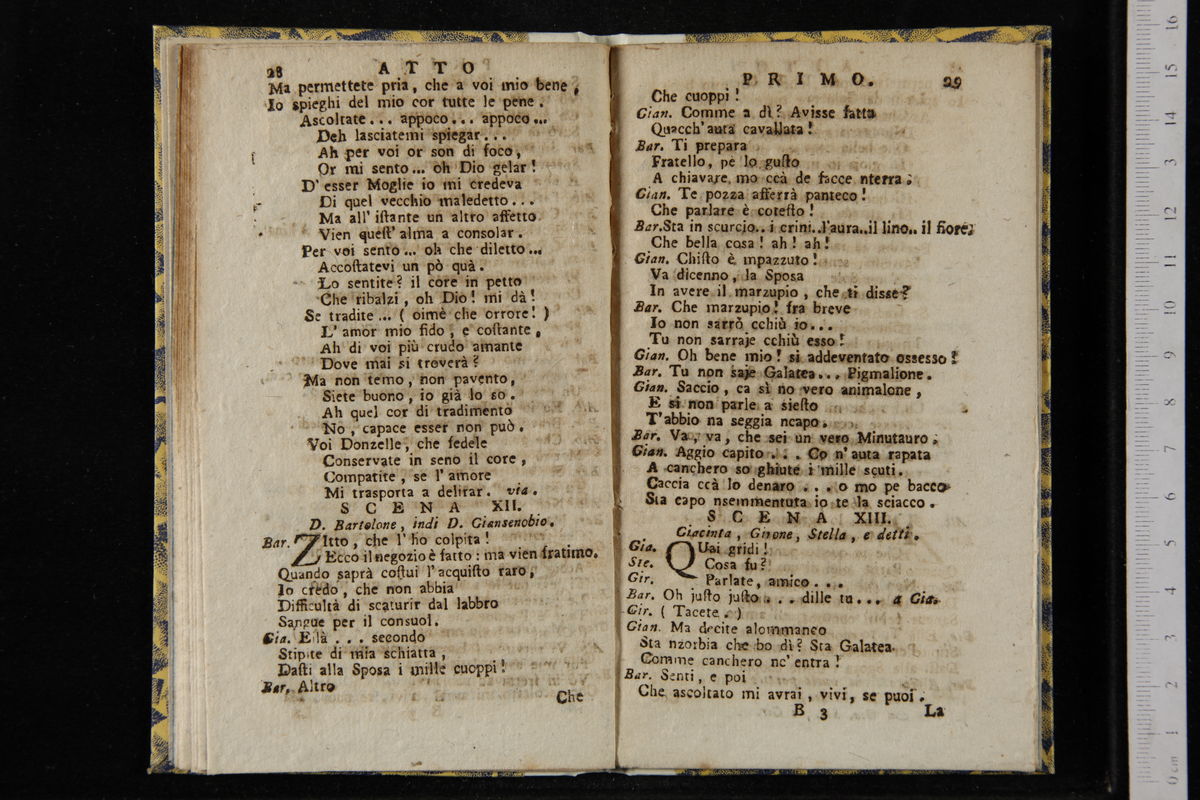 28 ATTO
Ma permettete pria, che a voi mio bene,
Io spieghi del mio cor tutte le pene.
Ascoltate... appoco... appoco...
Deh lasciatemi spiegar...
Ah per voi or son di foco,
Or mi sento... oh Dio gelar!
D'esser Moglie io mi credeva
Di quel vecchio maledetto...
Ma all'istante un altro affetto
Vien quest'alma a consolar.
Per voi sento... oh che diletto...
Accostatevi un pò quà.
Lo sentite? il core in petto
Che ribalzi, oh Dio! mi dà!
Se tradite... (oimè che orrore!)
L'amor mio fido, e costante,
Ah di voi più crudo amante
Dove mai si troverà?
Ma non temo, non pavento,
Siete buono, io già lo so.
Ah quel cor di tradimento
No, capace esser non può.
Voi Donzelle, che fedele
Conservate in seno il core,
Compatite, se l'amore
Mi trasporta a delirar. via.
SCENA XII.
D. Bartolone, indi D. Giansenobio.
Bar. ZItto, che l'ho colpita!
Ecco il negozio è fatto: ma vien fratimo.
Quando saprà costui l'acquisto raro,
Io credo, che non abbia
Difficultà di scaturir dal labbro
Sangue per il consuol.
Gia. Eilà... secondo
Stipite di mia schiatta,
Dasti alla Sposa i mille cuoppi!
Bar. Altro
Che
PRIMO. 29
Che cuoppi!
Gian. Comme a dì? Avisse fatta
Quacch'auta cavallata!
Bar. Ti prepara
Fratello, pe lo gusto
A chiavare mo ccà de facce nterra.
Gian. Te pozza afferrà panteco!
Che parlare è cotesto!
Bar. Sta in scurcio.. i crini..l'aura..il lino.. il fiore;
Che bella cosa! ah! ah!
Gian. Chisto è mpazzuto!
Va dicenno, la Sposa
In avere il marzupio, che ti disse?
Bar. Che marzupio! fra breve
Io non sarrò cchiù io...
Tu non sarraje cchiù esso!
Gian. Oh bene mio! si addeventato ossesso!
Bar. Tu non saje Galatea... Pigmalione.
Gian. Saccio, ca sì no vero animalone,
E si non parle a siesto
T'abbio na seggia ncapo.
Bar. Va, va, che sei un vero Minutauro.
Gian. Aggio capito... Co n'auta rapata
A canchero so ghiute i mille scuti.
Caccia ccà lo denaro... o mo pe bacco
Sta capo nsemmentuta io te la sciacco.
SCENA XIII.
Giacinta, Girone, Stella, e detti.
Gia. QUai gridi!
Ste. Cosa fu?
Gir. Parlate, amico...
Bar. Oh justo justo... dille tu... a Gia.
Gir. (Tacete.)
Gian. Ma decite alommanco
Sta nzorbia che bo dì? Sta Galatea
Comme canchero nc'entra!
Bar. Senti, e poi
Che ascoltato mi avrai, vivi, se puoi.
B 3 La
0 cm 1 2 3 4 5 6 7 8 9 10 11 12 3 14 15 16